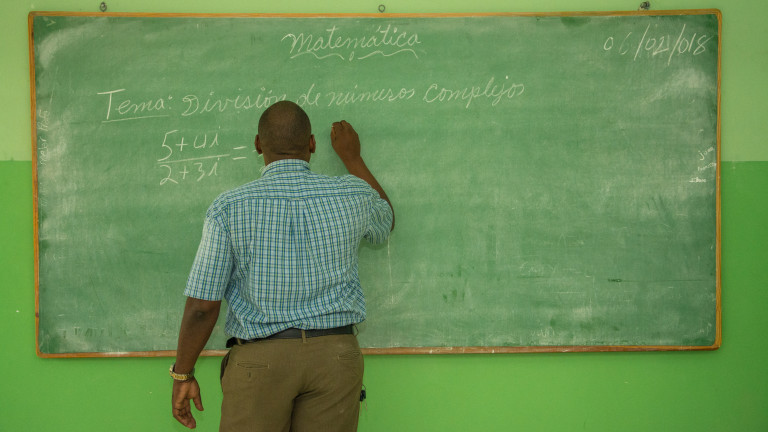 Matemática
06/02/018
Tema: División de números complejos
5+4i
2+3i =